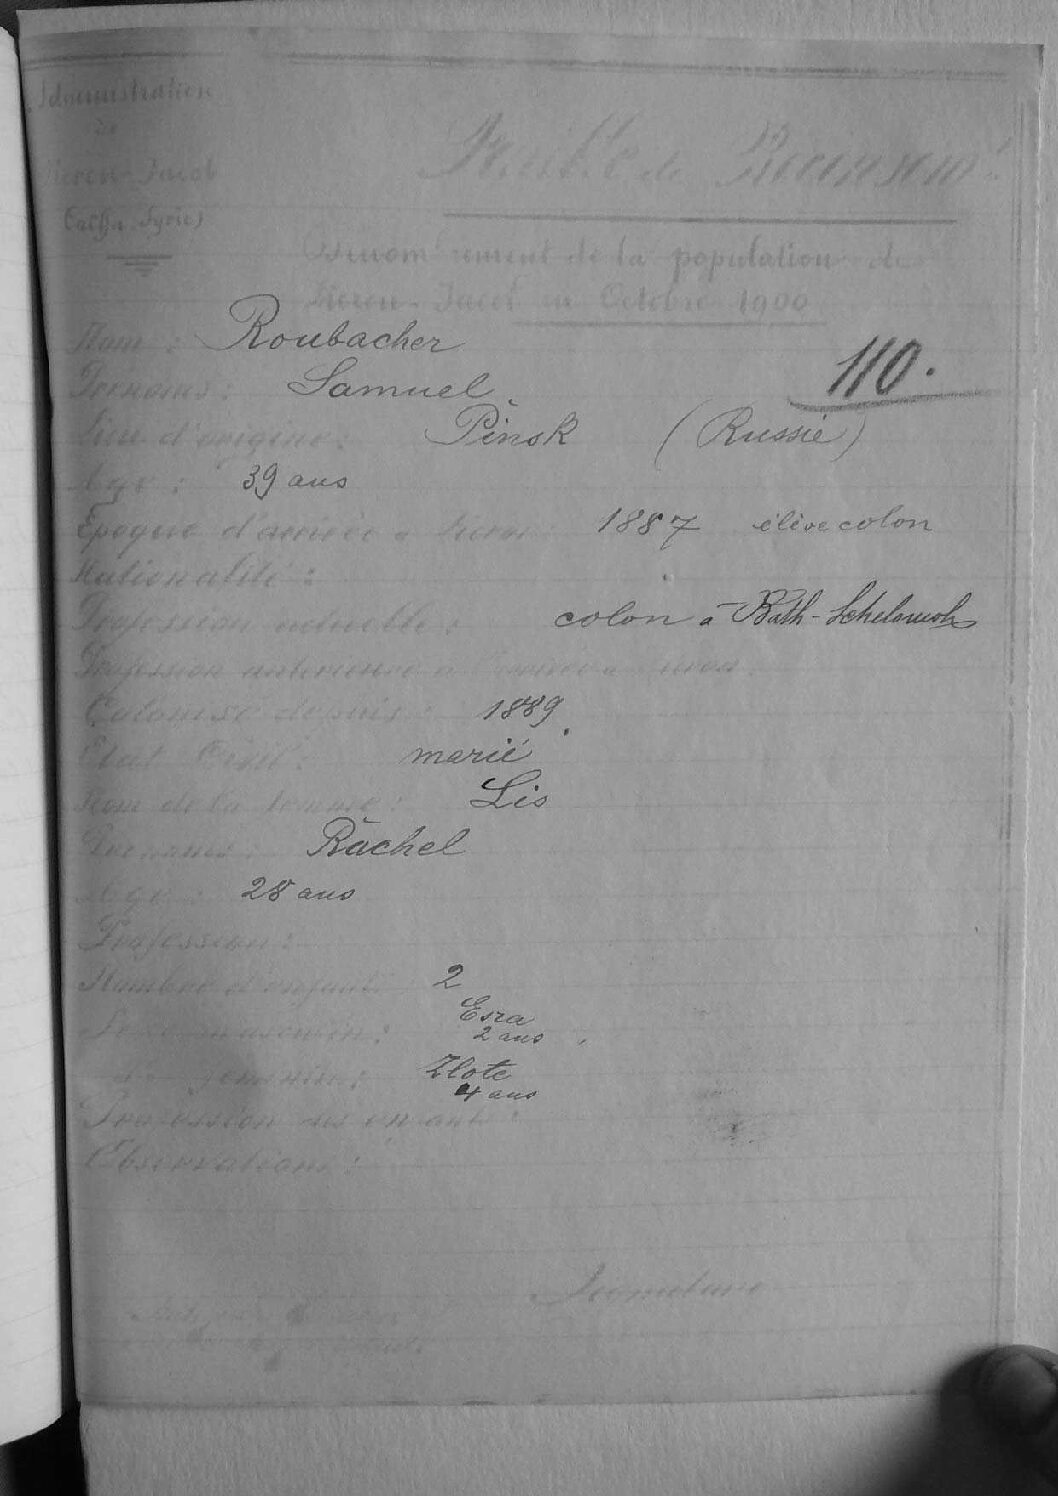 Administration
de
Zicron-Jacob
Caïffa (Syrie)
Feuille de Recensemt
Dénombrement de la population de
Zicron-Jacob en Octobre 1900
Nom : Roubacher
110.
Prénoms : Samuel
Lieu d'origine : Pinsk (Russie)
Age : 39 ans
Epoque d'arrivée à Zicron : 1887 élève colon
Nationalité :
Profession actuelle : colon à Bath-Schelomoh
Profession antérieure à l'arrivée à Zicron :
Colonisé depuis : 1889.
Etat Civil : marié
Nom de la femme : Lis
Prénoms : Rachel
Age : 28 ans
Profession :
Nombre d'enfants : 2
Sexe masculin : Esra
2 ans
féminin : Zlote
4 ans
Profession des enfants :
Observations :